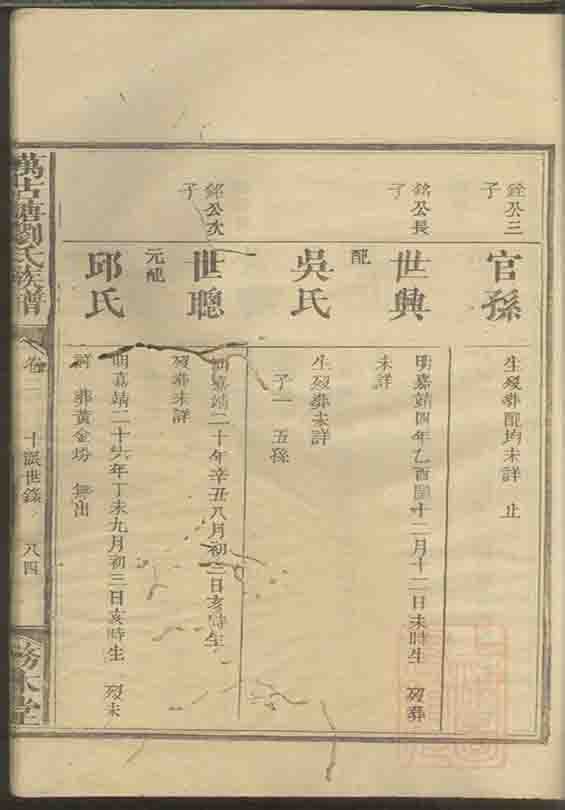 銓公三
子
官孫
生歿葬配均未詳 止
銘公長
子
世興
明嘉靖四年乙酉閏十二月十二日未時生 歿葬
未詳
配
吳氏
生歿葬未詳
子一 五孫
銘公次
子
世聰
明嘉靖二十年辛丑八月初 日亥時生
歿葬未詳
元配
邱氏
明嘉靖二十六年丁未九月初三日亥時生 歿未
詳 葬黃金坋 無出
萬古塘劉氏族譜
卷三 十 世錄 八四
務本堂